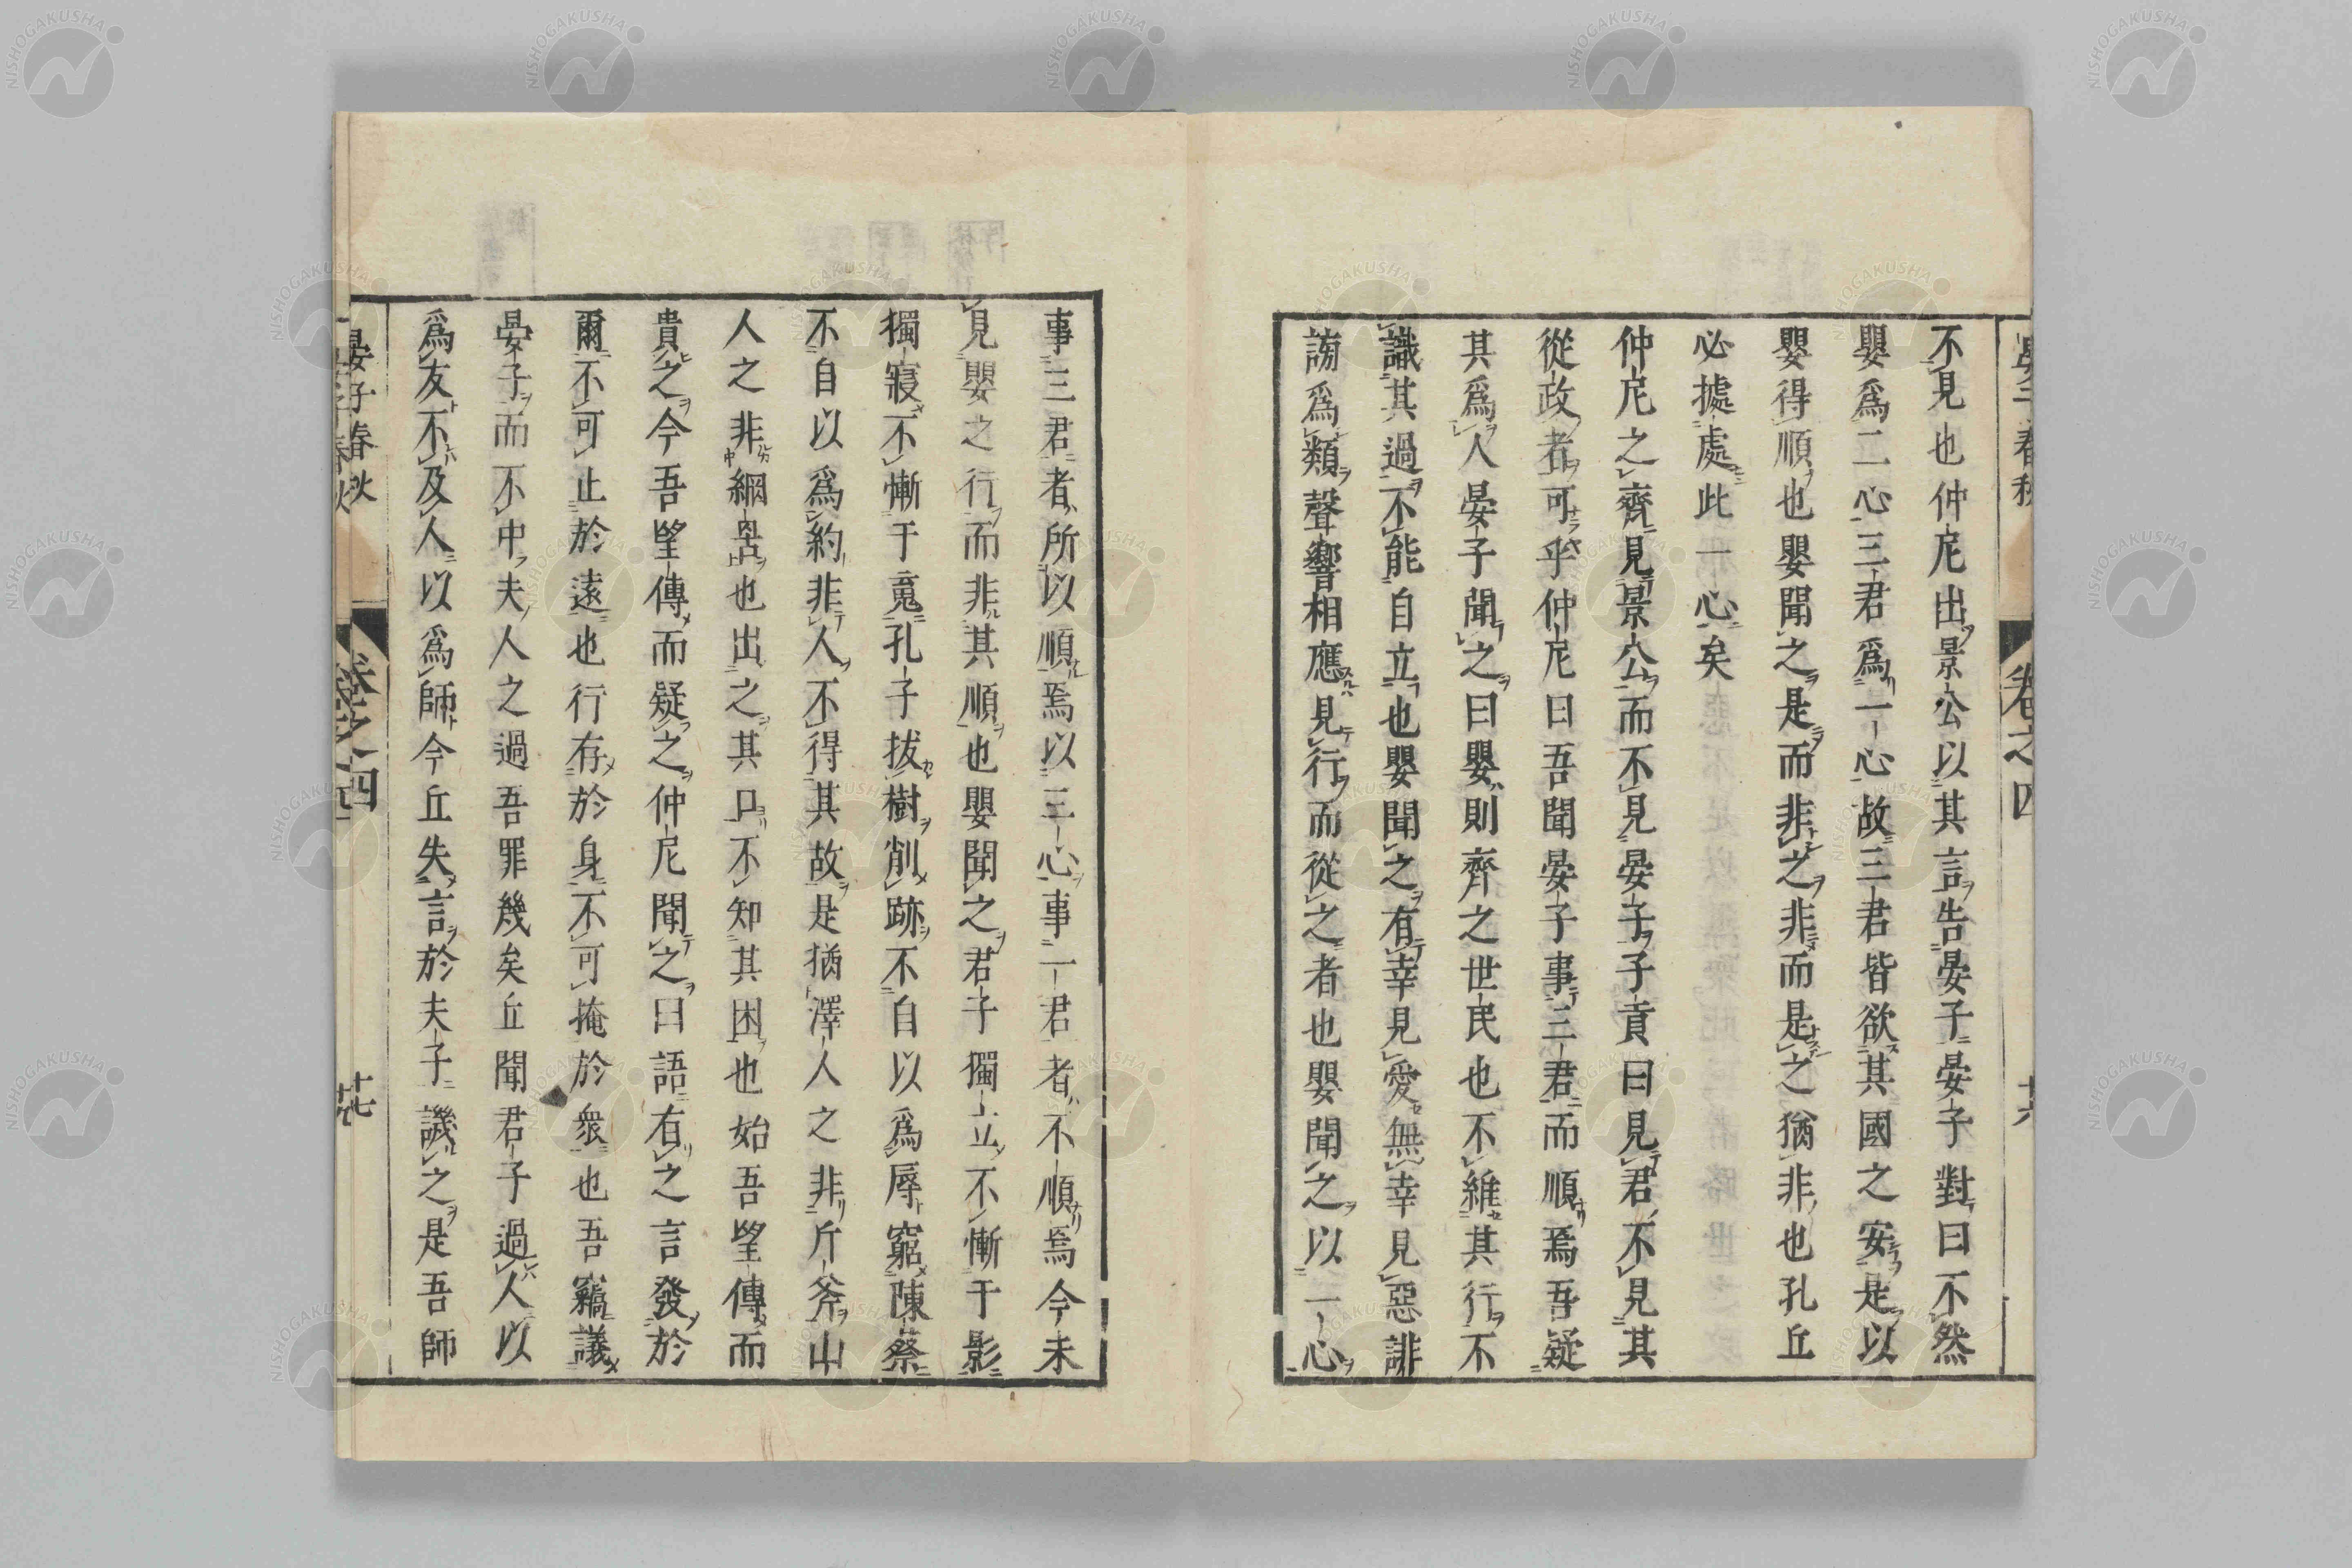 不見也仲尼出景公以其言告晏子晏子對曰不然
嬰爲二心三君爲一心故三君皆欲其國之安是以
嬰得順也嬰聞之是而非之非而是之猶非也孔丘
必據處此一心矣
仲尼之齊見景公而不見晏子子貢曰見君不見其
從政者可乎仲尼曰吾聞晏子事三君而順焉吾疑
其爲人晏子聞之曰嬰則齊之世民也不維其行不
識其過不能自立也嬰聞之有幸見愛無幸見惡誹
謗爲類聲響相應見行而從之者也嬰聞之以一心
事三君者所以順焉以三心事一君者不順焉今未
見嬰之行而非其順也嬰聞之君子獨立不慚于影
獨寢不慚于䰟孔子拔樹削跡不自以爲辱窮陳蔡
不自以爲約非人不得其故是猶澤人之非斤斧山
人之非網罟也出之其口不知其困也始吾望傳而
貴之今吾望傳而疑之仲尼聞之曰語有之言發於
爾不可止於遠也行存於身不可掩於衆也吾竊議
晏子而不中夫人之過吾罪幾矣丘聞君子過人以
爲友不及人以爲師今丘失言於夫子譏之是吾師
晏子春秋
卷之四